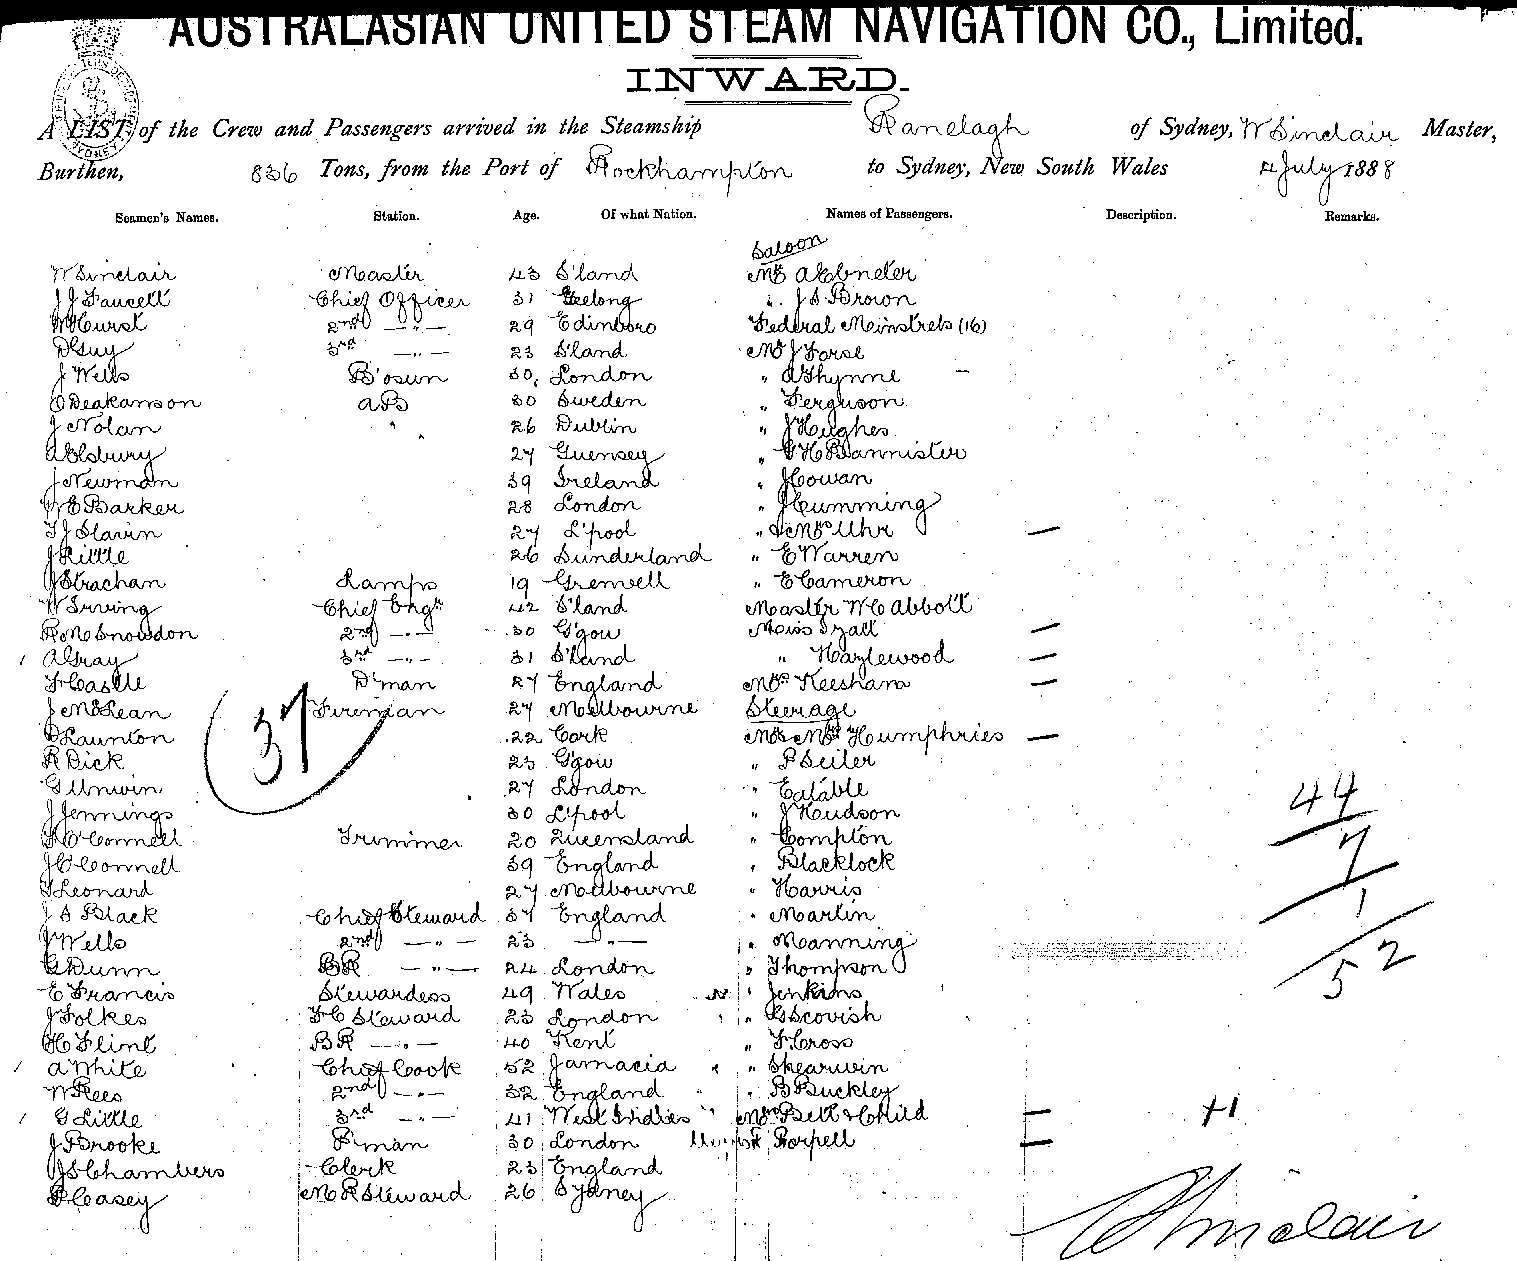 AUSTRALASIAN UNITED STEAM NAVIGATION CO., Limited.
INWARD.
A LIST of the Crew and Passengers arrived in the Steamship Ranelagh of Sydney, W Sinclair Master,
Burthen, 836 Tons, from the Port of Rockhampton to Sydney, New South Wales 4 July 1888
Seamen's Names. Station. Age. Of what Nation. Names of Passengers. Description. Remarks.
Saloon
W Sinclair Master 43 S'land Mr A Ebneter
J J Faucett Chief Officer 31 Geelong " J S Brown
W Hurst 2nd -"- 29 Edinboro Federal Minstrels (16)
D Guy 3rd -"- 23 S'land Mr J Forse
J Wells B'osun 30 London " A Thynne
O Deakanson AB 30 Sweden " Ferguson
J Nolan " 26 Dublin " J Hughes
A Elsbury 27 Guensey " G H Bannister
J Newman 39 Ireland " J Cowan
W E Barker 28 London " J Cumming
T J Slavin 27 L'pool " & Mrs Uhr
J Little 26 Sunderland " E Warren
J Strachan Lamps 19 " E Cameron
W Irving Chief Engr 42 S'land Master W C Abbott
R M Snowdon 2nd -"- 30 G'gow Miss
A Gray 3rd -"- 31 S'land " Hazlewood
F Castle D'man 27 England Mrs Keesham
J McLean Fireman 27 Melbourne Steerage
D Launton 22 Cork Mr & Mrs Humphries
R Dick 23 G'gow " P Seiler
G Unwin 27 London " Eatable
J Jennings 30 L'pool " J Hudson 44
O'Connell Trimmer 20 Queensland " Compton 7
J O'Connell 39 England " Blacklock
T Leonard 27 Melbourne " Harris 1
J S Black Chief Steward 37 England " Martin
J Wells 2nd -"- 23 -"- " Manning 52
G Dunn BR -"- 24 London " Thompson
E Francis Stewardess 49 Wales " Jenkins
J Folkes F C Steward 23 London " G Scovish
H Flint BR -"- 40 Kent " F Cross
A White Chief Cook 52 Jamacia " Shearwin
W Rees 2nd -"- 32 England " B Buckley
G Little 3rd -"- 41 West Indies Mrs Bell & Child +1
J Brooke P'man 30 London Porpell
J S Chambers Clerk 23 England
P Casey M R Steward 26 Sydney
37
W Sinclair